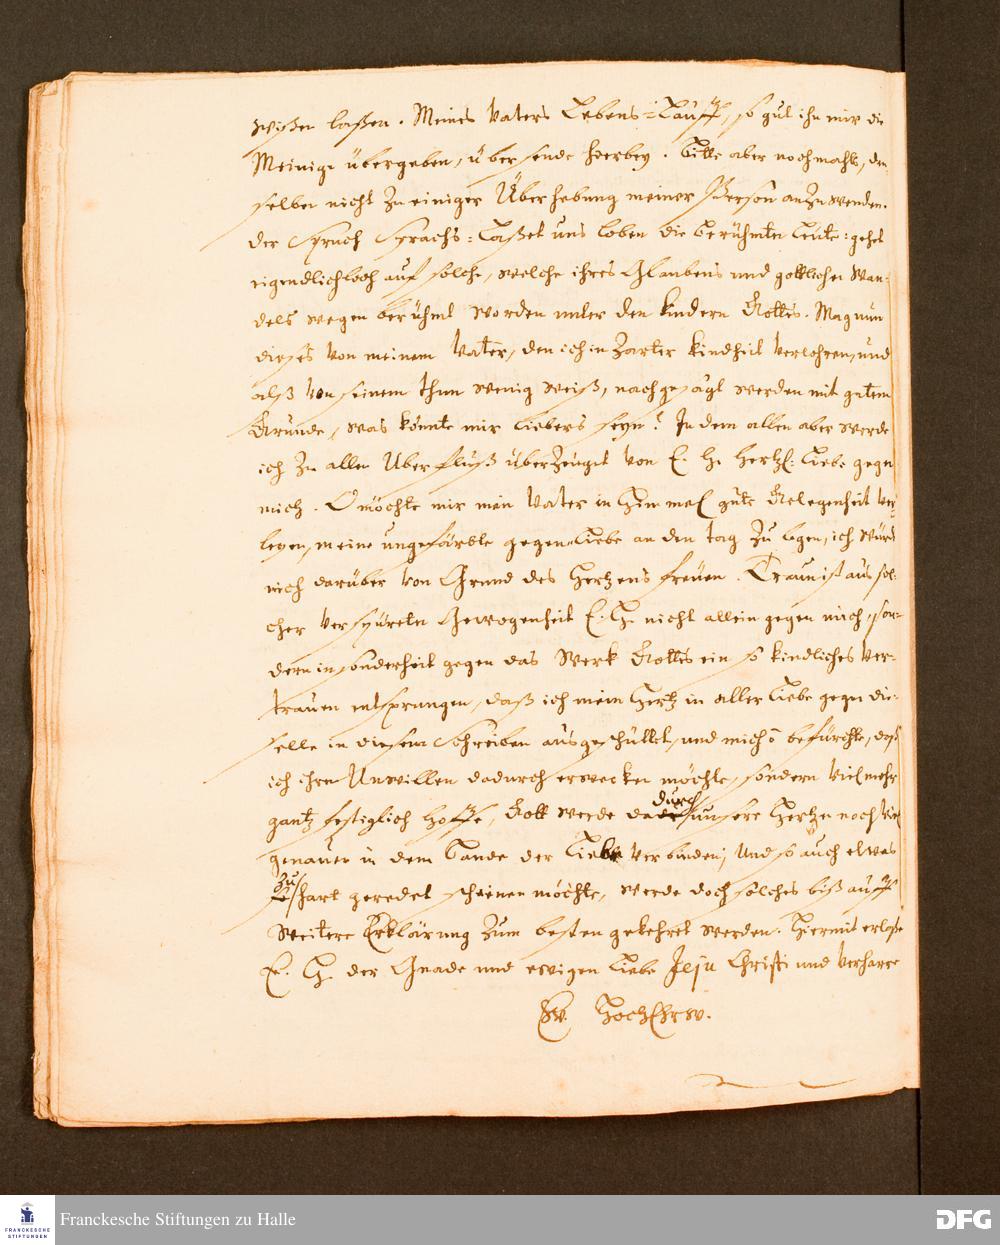 wißen laßen. Meines Vaters Lebens-Lauff, so gut ihn mir die
Meinige übergeben, übersende hierbey. Bitte aber nochmahls, den-
selben nicht zu einiger Überhebung meiner Person anzuwenden.
Der Spruch Syrachs: Laßet uns loben die berühmten Leute: gehet
eigendlich auf solche, welche ihres Glaubens und gottlichen Wan-
dels wegen berühmt worden unter den Kindern Gottes. Mag nun
dieses von meinem Vater, den ich in zarter Kindheit verlohren, und
alß von seinem thun wenig weiß, nachgesagt werden mit gutem
Grunde, was könte mir liebers seyn? In dem allen aber werde
ich zu allem Uberfluß überzeuget von E. H. hertzl. Liebe gegen
mich. O möchte mir mein Vater im Himmel gute Gelegenheit ver-
leyen, meine ungefärbte gegen-Liebe an den tag zu legen, ich würde
mich darüber von Grund des Hertzens freuen. Traun ist aus sol-
cher verspürten Gewogenheit E. H. nicht allein gegen mich, son-
dern insonderheit gegen das Werk Gottes ein so kindliches Ver-
trauen entsprungen, daß ich mein Hertz in aller Liebe gegen die-
selbe in diesem Schreiben ausgeschüttet, und mich befürchte, daß
ich ihren Unwillen dadurch erwecken möchte, sondern vielmehr
gantz festiglich hoffe, Gott werde dadurch unsere Hertzen noch viel
genauer in dem Bande der Liebe verbinden; Und so auch etwas
zu hart geredet scheinen möchte, werde doch solches biß auff
weitere Erklärung zum besten gekehret werden. Hiermit erlaße
E. H. der Gnade und ewigen Liebe Jesu Christi und verharre
Ew. HochEhrw.
Franckesche Stiftungen zu Halle
FRANCKESCHE
STIFTUNGEN
DFG